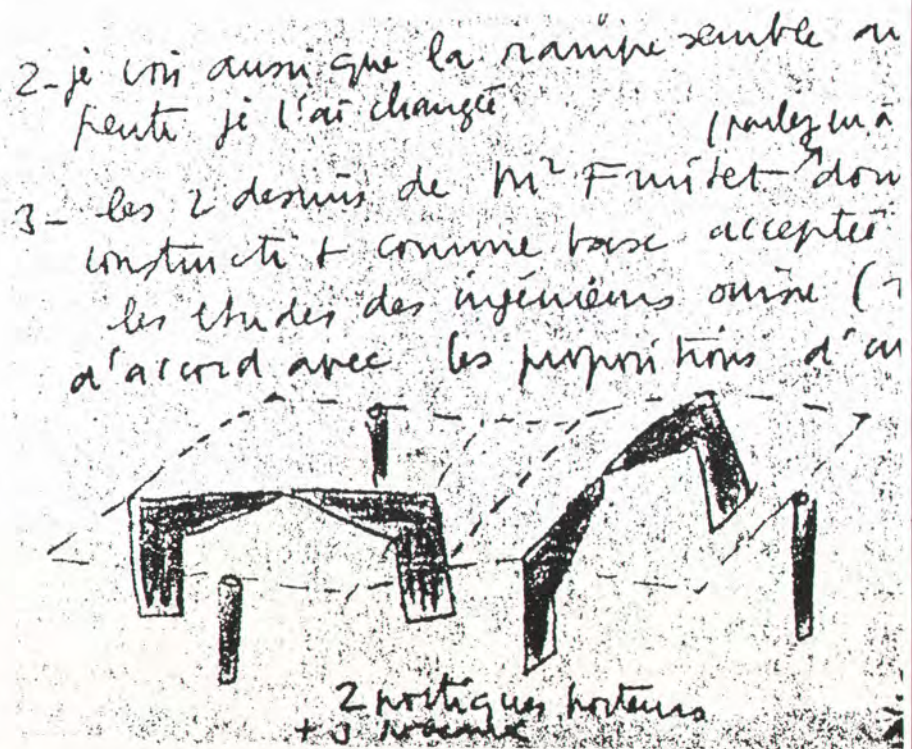 2- je vois aussi que la rampe semble au
pente je l'ai changée
(parlez m'
3- les 2 dessins de Mr Fruitet don
constructi + comme base acceptée
les études des ingénieurs suisse (
d'accord avec les propositions d'
2 portiques porteurs
+ 3